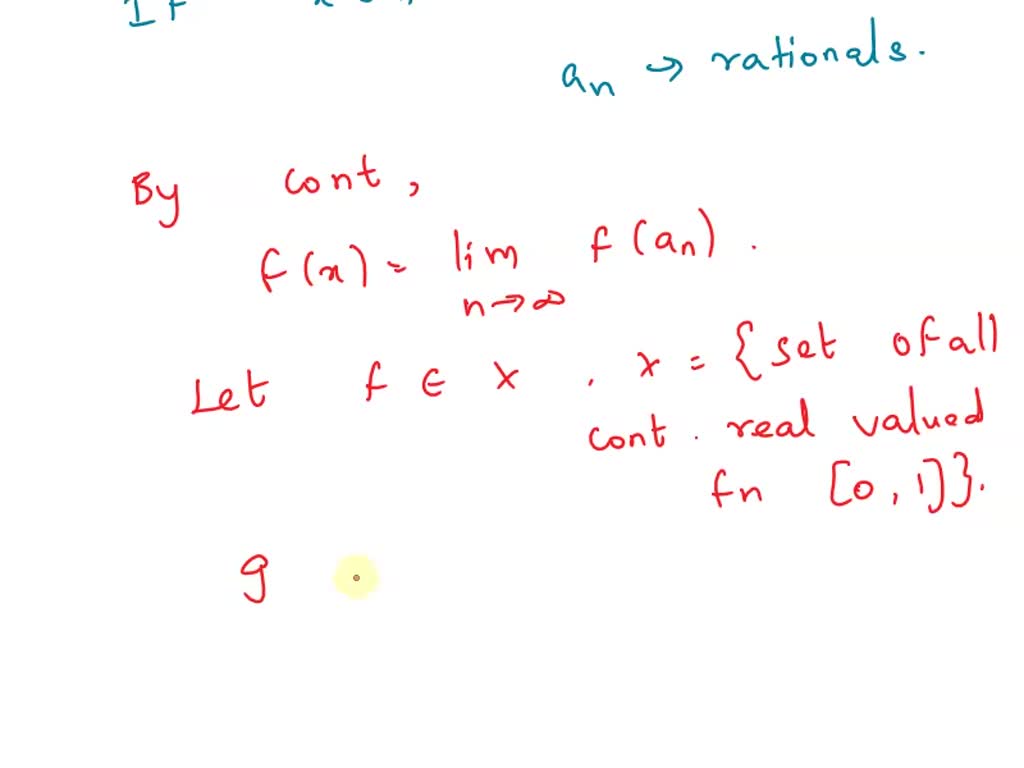 If
aₙ → rationals.
By cont,
f(x) = lim f(aₙ).
n→∞
Let f ∈ X. X = {set of all
cont. real valued
fn [0,1]}.
g